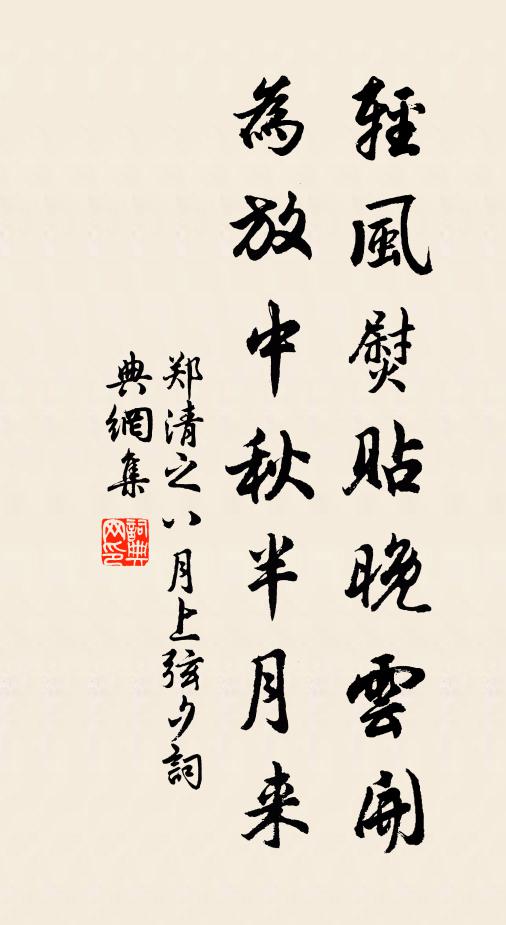 輕風熨貼晚雲開
為放中秋半月来
郑清之八月上弦夕詞
典網集
詞典網印